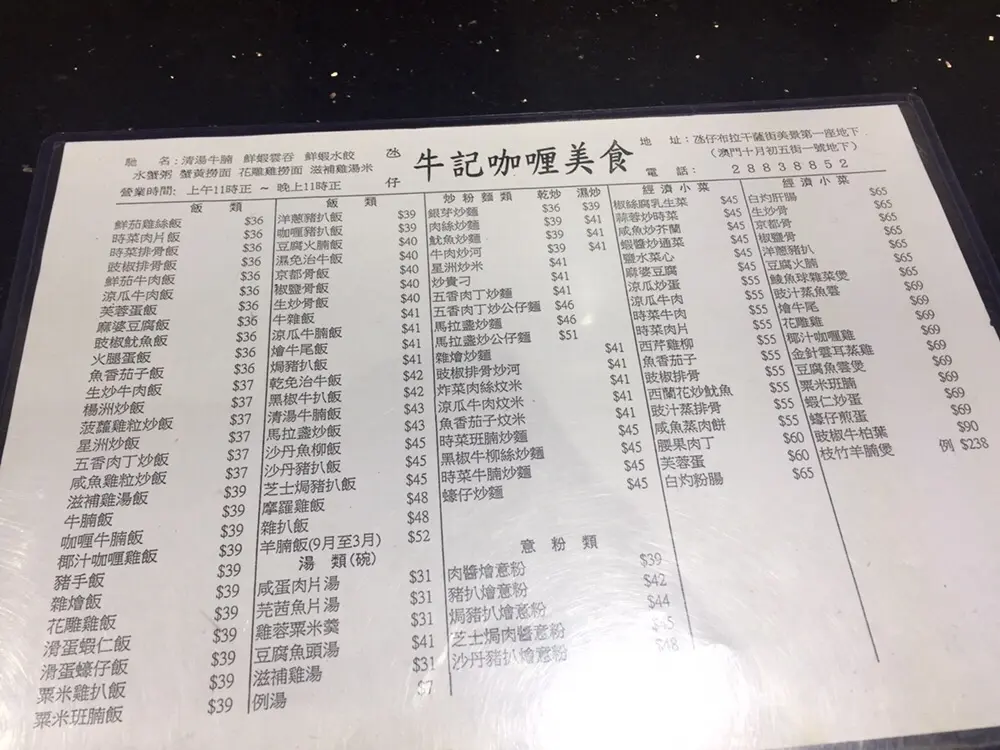 馳 名:清湯牛腩 鮮蝦雲吞 鮮蝦水餃
水蟹粥 蟹黃撈面 花雕雞撈面 滋補雞湯米
營業時間: 上午11時正 ~ 晚上11時正
氹仔 牛記咖喱美食
地 址:氹仔布拉干薩街美景第一座地下
(澳門十月初五街一號地下)
電 話: 28838852
飯 類
鮮茄雞絲飯 $36
時菜肉片飯 $36
時菜排骨飯 $36
豉椒排骨飯 $36
鮮茄牛肉飯 $36
涼瓜牛肉飯 $36
芙蓉蛋飯 $36
麻婆豆腐飯 $36
豉椒魷魚飯 $36
火腿蛋飯 $36
魚香茄子飯 $36
生炒牛肉飯 $37
楊洲炒飯 $37
菠蘿雞粒炒飯 $37
星洲炒飯 $37
五香肉丁炒飯 $37
咸魚雞粒炒飯 $37
滋補雞湯飯 $39
牛腩飯 $39
咖喱牛腩飯 $39
椰汁咖喱雞飯 $39
豬手飯 $39
雜燴飯 $39
花雕雞飯 $39
滑蛋蝦仁飯 $39
滑蛋蠔仔飯 $39
粟米雞扒飯 $39
粟米班腩飯 $39
飯 類
洋蔥豬扒飯 $39
咖喱豬扒飯 $39
豆腐火腩飯 $40
濕免治牛飯 $40
京都骨飯 $40
椒鹽骨飯 $40
生炒骨飯 $40
牛雜飯 $41
涼瓜牛腩飯 $41
燴牛尾飯 $41
焗豬扒飯 $41
乾免治牛飯 $42
黑椒牛扒飯 $42
清湯牛腩飯 $43
馬拉盞炒飯 $43
沙丹魚柳飯 $45
沙丹豬扒飯 $45
芝士焗豬扒飯 $45
摩羅雞飯 $48
雜扒飯 $48
羊腩飯(9月至3月) $52
湯 類(碗)
咸蛋肉片湯 $31
芫茜魚片湯 $31
雞蓉粟米羹 $31
豆腐魚頭湯 $41
滋補雞湯 $31
例湯 $7
炒粉麵類 乾炒 濕炒
銀芽炒麵 $36 $39
肉絲炒麵 $39 $41
魷魚炒麵 $39 $41
牛肉炒河 $39 $41
星洲炒米 $41
炒貴刁 $41
五香肉丁炒麵 $41
五香肉丁炒公仔麵 $46
馬拉盞炒麵 $46
馬拉盞炒公仔麵 $51
雜燴炒麵 $41
豉椒排骨炒河 $41
炸菜肉絲炆米 $41
涼瓜牛肉炆米 $41
魚香茄子炆米 $41
時菜班腩炒麵 $45
黑椒牛柳絲炒麵 $45
時菜牛腩炒麵 $45
蠔仔炒麵 $45
意 粉 類
肉醬燴意粉 $39
豬扒燴意粉 $42
焗豬扒燴意粉 $44
芝士焗肉醬意粉 $45
沙丹豬扒燴意粉 $48
經濟小菜
椒絲腐乳生菜 $45
蒜蓉炒時菜 $45
咸魚炒芥蘭 $45
蝦醬炒通菜 $45
鹽水菜心 $45
麻婆豆腐 $45
涼瓜炒蛋 $55
涼瓜牛肉 $55
時菜牛肉 $55
時菜肉片 $55
西芹雞柳 $55
魚香茄子 $55
豉椒排骨 $55
西蘭花炒魷魚 $55
豉汁蒸排骨 $55
咸魚蒸肉餅 $55
腰果肉丁 $60
芙蓉蛋 $60
白灼粉腸 $65
經濟小菜
白灼肝腸 $65
生炒骨 $65
京都骨 $65
椒鹽骨 $65
洋蔥豬扒 $65
豆腐火腩 $65
鯪魚球雜菜煲 $65
豉汁蒸魚雲 $69
燴牛尾 $69
花雕雞 $69
椰汁咖喱雞 $69
金針雲耳蒸雞 $69
豆腐魚雲煲 $69
粟米班腩 $69
蝦仁炒蛋 $69
蠔仔煎蛋 $69
豉椒牛柏葉 $90
枝竹羊腩煲 例 $238